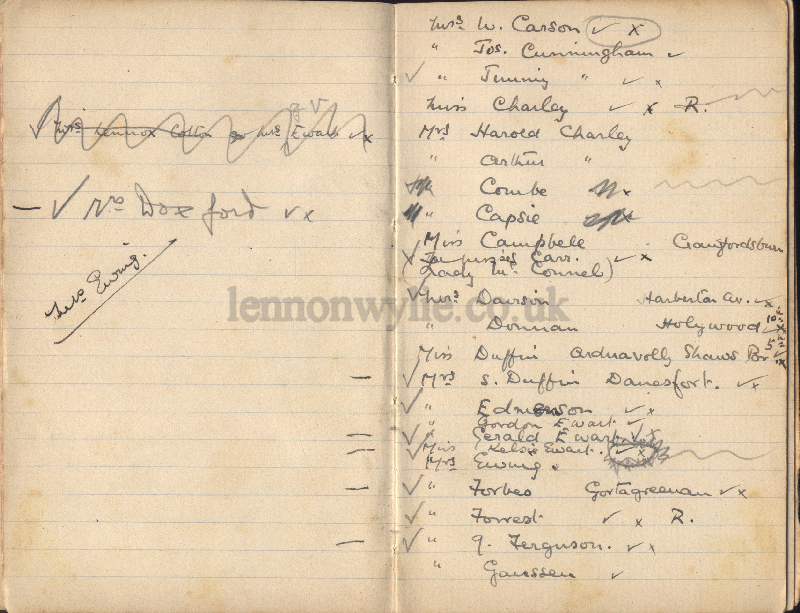 ✓ Mrs Lennox Cotton Mrs Ewart ✓ x
— ✓ Mrs Doxford ✓ x
Mrs Ewing.
lennonwylie.co.uk
Mrs W. Carson ✓ x
" Jos. Cunningham ✓
✓ " Jimmy " ✓ x
Miss Charley ✓ x R.
Mrs Harold Charley
" Arthur "
Combe x
" Capsie x
Miss Campbell Crawfordsburn
x Carr. ✓ x
(Lady Mc Connel)
✓ Mrs Dawson Harberton Av. ✓ x
" Donnan Holywood ✓ x
Miss Duffin Ardnavolly Shaws Br
— ✓ Mrs S. Duffin Danesfort. ✓ x
✓ " Edmenson ✓ x
" Gordon Ewart ✓
— ✓ " Gerald Ewart ✓ x
— ✓ Miss Kelsie Ewart. ✓ x
Mrs Ewing.
— ✓ " Forbes Gortagreenan ✓ x
✓ " Forrest ✓ x R.
— ✓ " G. Ferguson. ✓ x
" Gaussen ✓